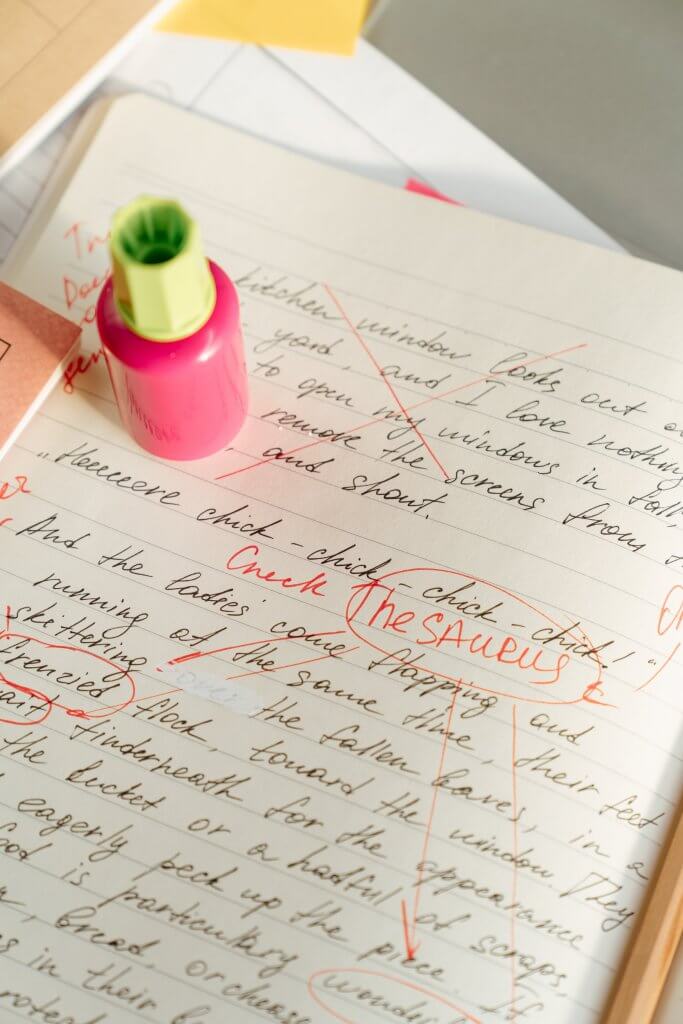 kitchen window looks out o
yard, and I love nothing
to open my windows in fall,
remove the screens from t
, and shout.
"Heeeere chick-chick-chick-chick!"
Check THESAURUS
And the ladies come flapping and
running at the same time, their feet
skittering the fallen leaves, in a
frenzied flock, toward the window. They
wait underneath for the appearance
the bucket or a hadful of scraps,
eagerly peck up the piece. If
ood is particulary wonder
, bread, or cheese
s in their b